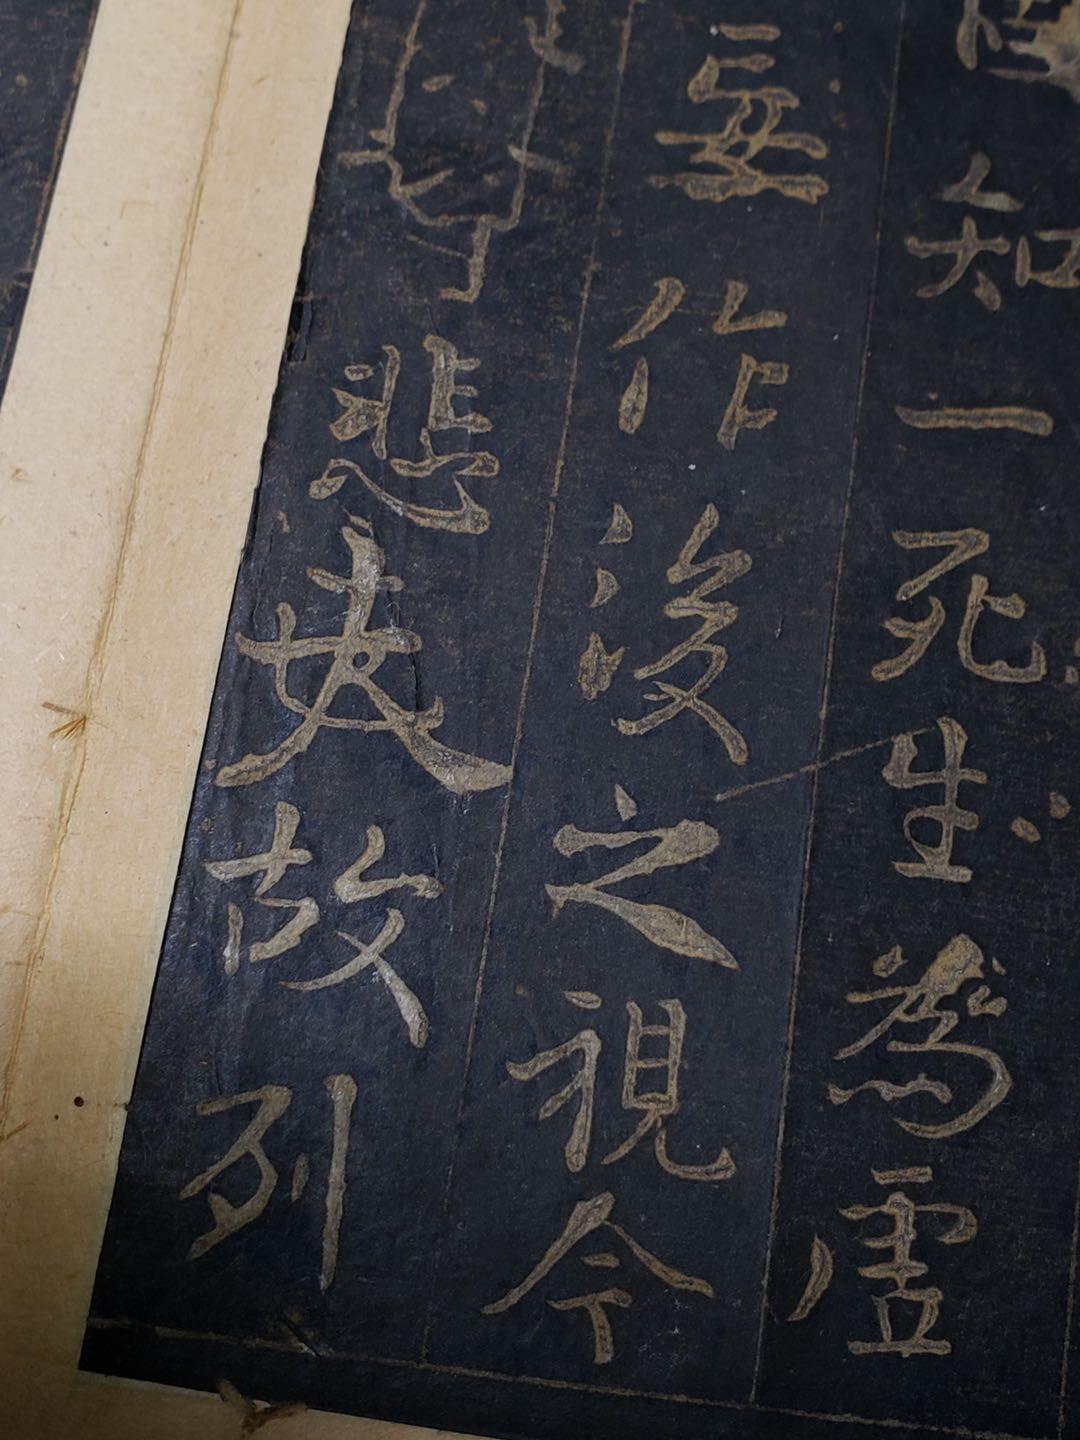 知一死生為虛
妄作後之視今
悲夫故列